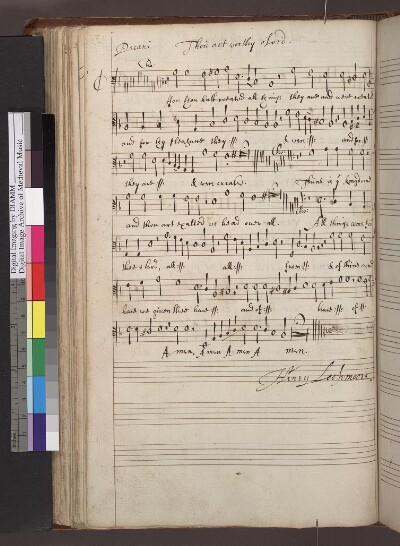 Decani Thou art worthy o Lord.
for thou hast created all things they are and were created
and for thy pleasure they :||: & were :||: and for :||:
they are :||: & were create. Thine is ye kingdome
and thou art exalted as head over all. All things come
thee o lord, all :||: all :||: from :||: & of thine owne
have we given thee have :||: and of :||: have :||: of :||:
A men, A men A men A men.
Henry
Digital Imaging by DIAMM
Digital Image Archive of Medieval Music